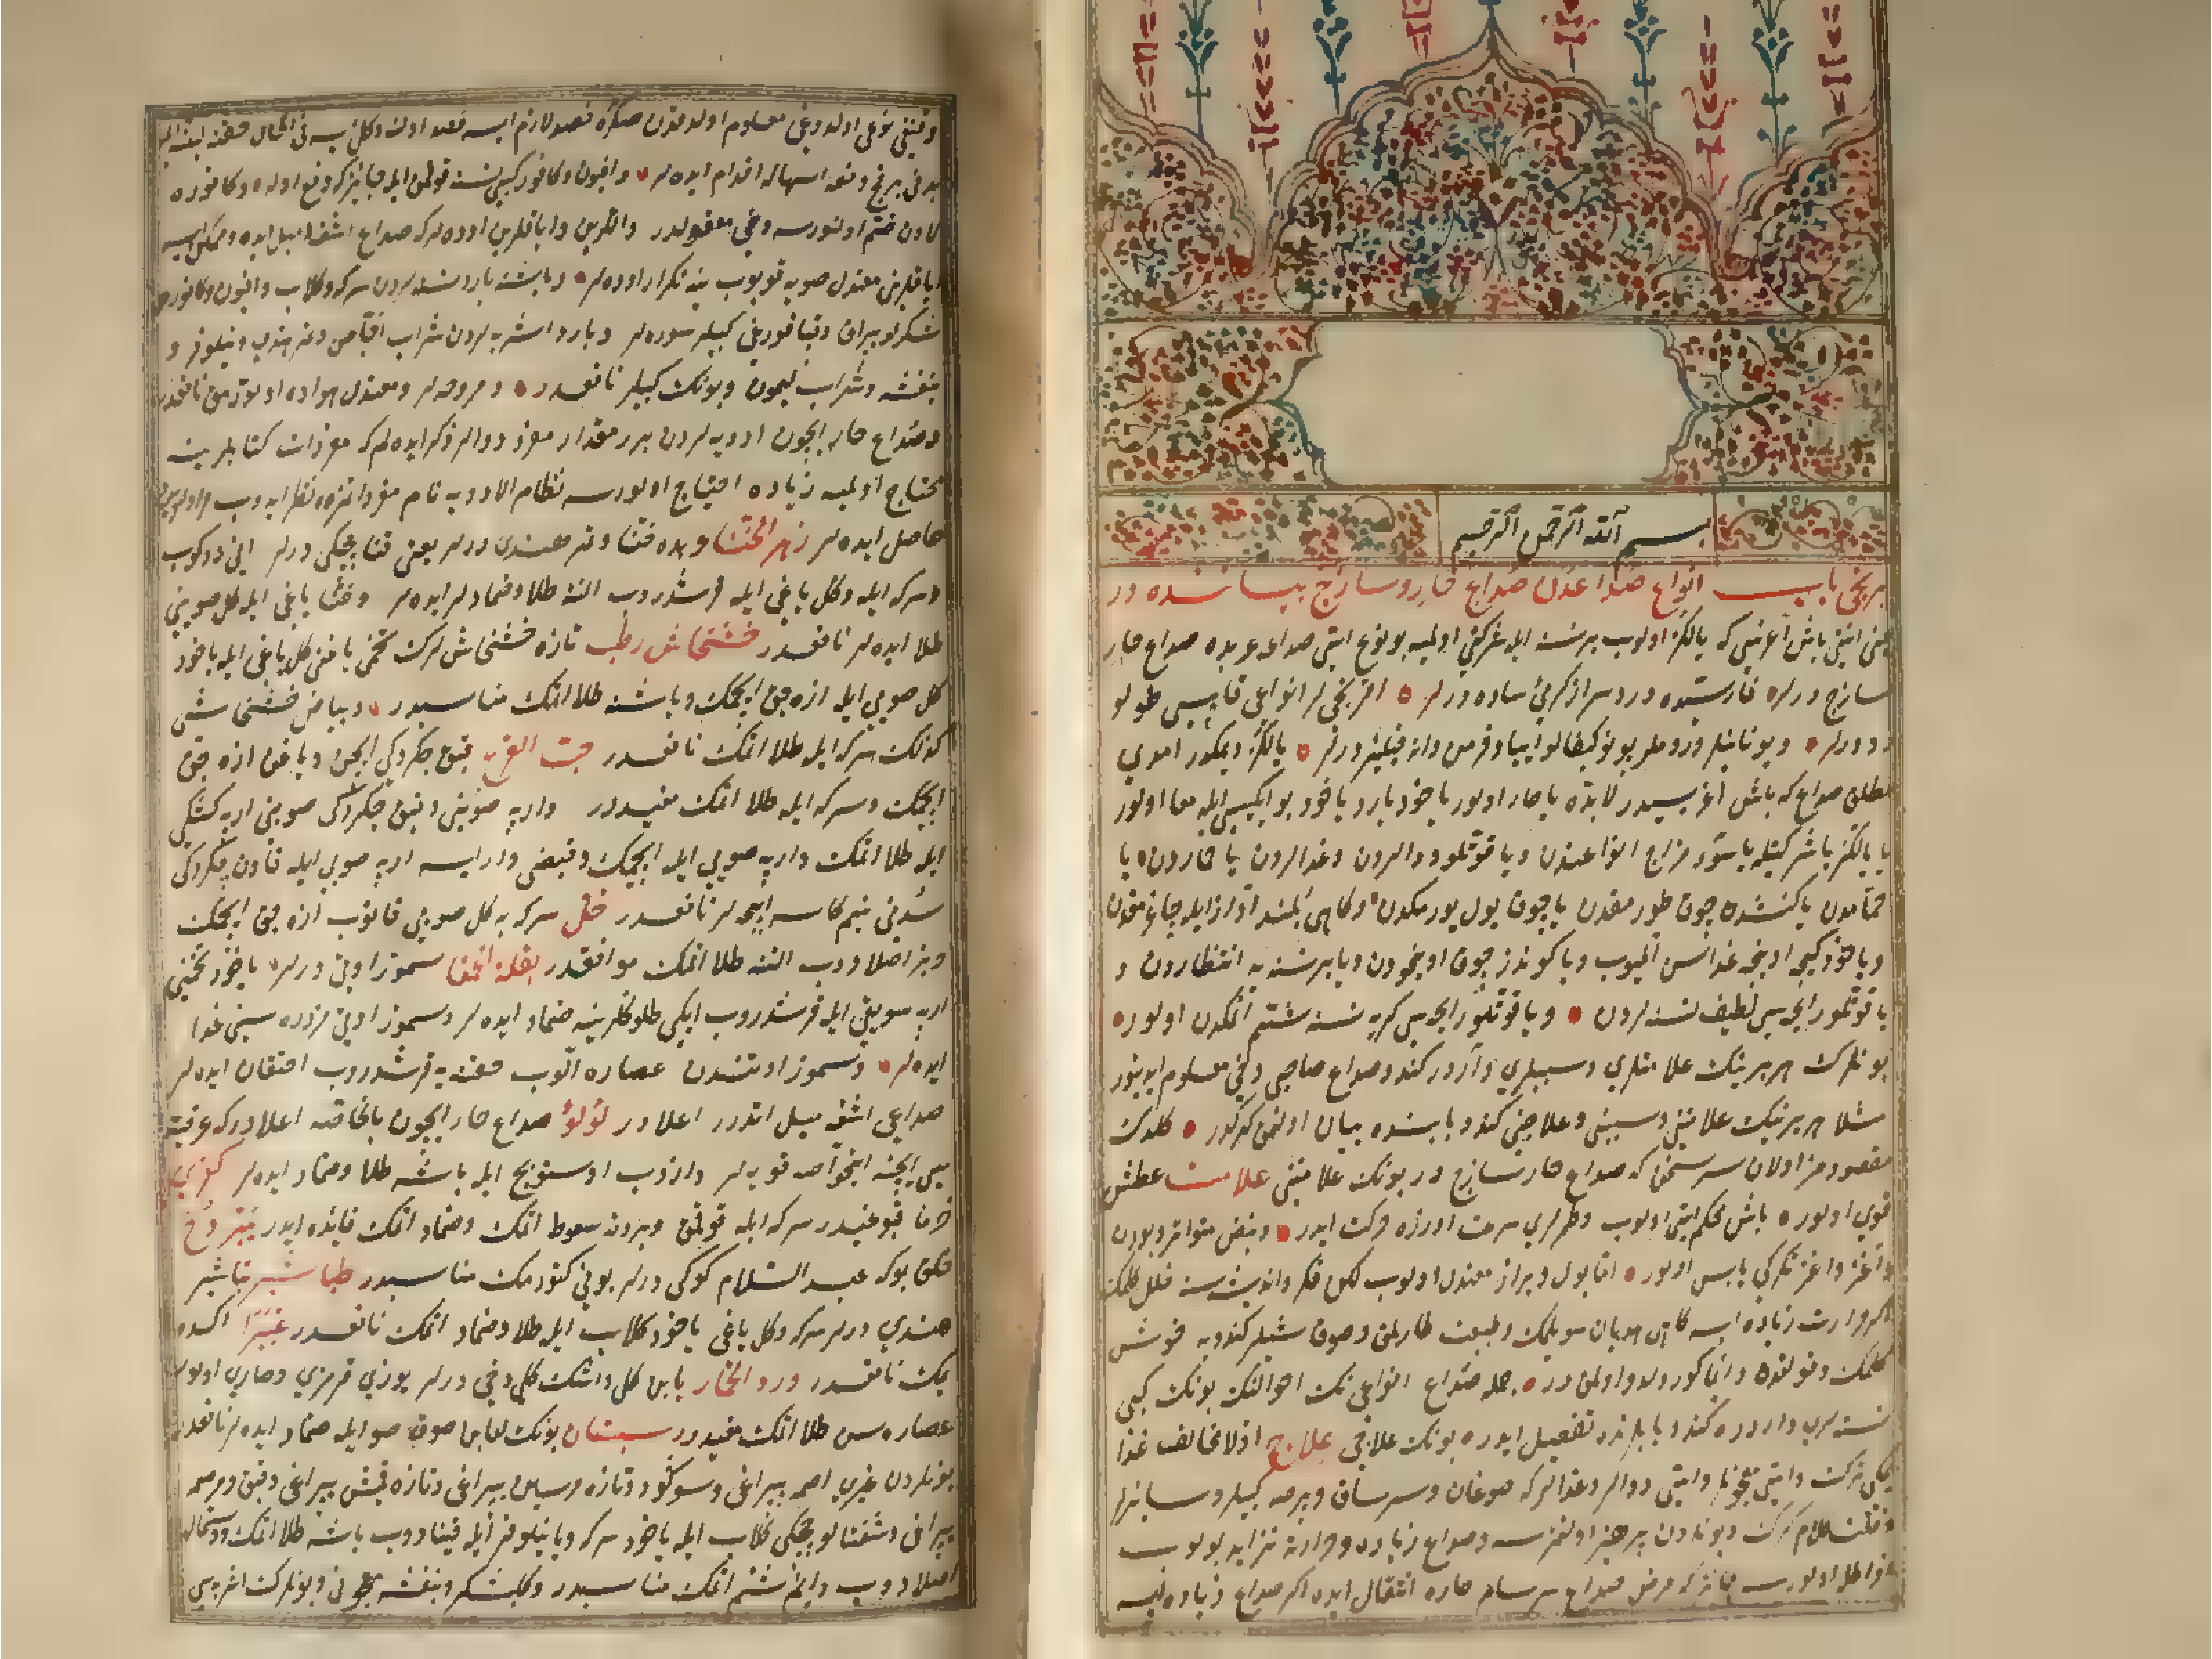 بسم الله الرحمن الرحيم
برنجی باب انواع صداعدن صداع حار و سازج بیاننده در
یعنی ایتی باش اغریسی که یالکز اولوب برنسنه ایله شرکتی اولمیه بو نوع ایتی صداعه عربیده صداع حار
سازج درلر فارسیده درد سر از کرمئ ساده درلر افرنجی لر انواعی قاپیسی طولو
دو درلر و یونانیلر و روملر بونو درلر یالکز دیمکدر اموی
مطلق صداع که باش اغریسیدر لابده یا حار اولور یاخود بارد یاخود بو ایکیسی ایله معا اولور
یا یالکز یا شرکتله یا سوء مزاج انواعندن و یا قوتلو دوالردن و غدالردن یا حاردن یا
حمامدن یا کنشده چوق طورمقدن یا چوق یول یورمکدن و کاهی بلند آواز ایله چاغرمقدن
و یاخود کیجه اویخه غداسن الیوب و یا کوندز چوق اویخودن و یا برنسنه یه انتظاردن و
یا قوقلور ایحه سی لطیف نسنه لردن و یا قوقلور ایحه سی کریه نسنه شتم اتمکدن اولور
بونلرک هر برینک علامتلری و سببلری واردر کندو صداع صاحبی دخی معلوم ایدینور
مثلا هر برینک علامتنی و سببنی و علاجنی کندو بابنده بیان اولنمق کرکدر کلدک
مقصودمز اولان سر سخن که صداع حار سازج در بونک علامتی علامت عطش
قوی اولور باش محکم ایتی اولوب و طمرلری سرعت اوزره حرکت ایدر و نبض متواتر و بورن
و اغز و اغز تکرکی یابس اولور اما بول و براز معتدل اولوب لکن فکر و اندیشه سنه خلل کلمک
اکر حرارت زیاده ایسه کاهی هذیان سویلمک و طبیعت طارلمق و صوق شیلر کندویه خوش
کلمک و اکا کورولدو اولمق در جمله صداع انواعی نک احوالنک بونک کبی
نسنه لری واردر کندو بابلرنده تفصیل ایدر بونک علاجی علاج اولا مخالف غذا
ترک و ایتی معجونلر و ایتی دوالر و غدالر که صوغان و سرمساق و برصه کبیلر و سایرلر
و قلت کلام کرک و بونلردن پرهیز اولنمزسه و صداع زیاده و حرارته تزاید بولوب
اولورسه جایزدر که مرض صداع سرسام حاره انتقال ایده اکر صداع زیاده ایسه
و قنقی نوعی اولدوغی معلوم اولدقدن صکره فصد لازم ایسه فصد اولنه دکل ایسه فی الحال حقنه لینه ایله
بدنی برقچ دفعه اسهاله اقدام ایده لر و افیون و کافور کبی نسنه قوللنمق ایله جایزکه دفع اوله و کافوره
اولنورسه دخی معقولدر و اللرین و ایاقلرین اووه لرکه صداع اشغه میل ایده و ممکن ایسه
ایاقلرینی معتدل صویه قویوب ینه تکرار اووه لر و باشنه بارد نسنه لردن سرکه و کلاب و افیون و کافور و
شکرلو بیراق و قبا قوریغی کبیلر سوره لر و بارد اشربه لردن شراب اجاص و تمر هندی و نیلوفر و
بنفشه و شراب لیمون و بونک کبیلر نافعدر و مروحه لر و معتدل هواده اوتورمق نافعدر
و صداع حار ایچون ادویه لردن برر مقدار مفرد دوالر ذکر ایده لم که مفردات کتابلرینه
محتاج اولمیه زیاده احتیاج اولورسه نظام الادویه نام مفرداتمزه نظر ایدوب
حاصل ایده لر زهر الحنا و هم حنا و تمر حندی درلر یعنی قنا چچکی درلر انی دوکوب
و سرکه ایله و کل یاغی ایله قرشدروب الننه طلا و ضماد لر ایده لر و حنا یاغی ایله کل صوینی
طلا ایده لر نافعدر خشخاش رطب تازه خشخاش لرک تخمی یاغن کل یاغی ایله یاخود
کل صویی ایله ازه جق ایچمک و باشنه طلا اتمک مناسبدر و بیاض خشخاشی
کذلک سرکه ایله طلا اتمک نافعدر حب القرع قبق جکردکی ایچن و یاغن ازه جق
ایچمک و سرکه ایله طلا اتمک مفیددر و ارپه صوینی و قبق جکردکی صوینی ارپه کشکی
ایله طلا اتمک و ارپه صویی ایله ایچمک و قبضی وار ایسه ارپه صویی ایله قاون چکردکی
سودنی نیم کاسه ایچه لر نافعدر خل سرکه یه کل صویی قاتوب ازه جق ایچمک
و بز اصلادوب الننه طلا اتمک موافقدر بقلة الحمقا سموز اوتی درلر یاخود تخمنی
ارپه سویقی ایله قرشدروب ایکی طلولکلرینه ضماد ایده لر و سموز اوتی مزوره سنی غدا
ایده لر و سموز اوتندن عصاره آلوب حقنه یه قرشدروب احتقان ایده لر
صداعی اشغه میل اتدرر اعلا در لؤلؤ صداع حار ایچون بالخاصه اعلادر که
ایچنه اینجو آصه قویه لر و ازدوب اوستوبج ایله باشنه طلا و ضماد ایده لر
خرما سرکه ایله قوللنمق و برونه سعوط اتمک و ضماد اتمک فایده ایدر یبروح
عبد السلام کوکی درلر بونی کتورمک مناسبدر طباشیر تباشیر
هندی درلر سرکه و کل یاغی یاخود کلاب ایله طلا و ضماد اتمک نافعدر
نافعدر ورد الحمار یابن کل و اشک کلی دخی درلر یوزی قرمزی و صاری اولور
عصاره سن طلا اتمک مفیددر سبستان بونک لعابن صوق صو ایله ضماد ایده لر نافعدر
بونلردن غیری اصمه یپراغی و سوکود و تازه مرسین یپراغی و تازه قمش یپراغی و قبق و مرصمه
یپراغی و شفتالو چچکی کلاب ایله یاخود سرکه و یا نیلوفر ایله قیناددب باشه طلا اتمک
اصلادوب دایم شتم اتمک مناسبدر و کلبشکر و بنفشه معجونی و بونلرک اشربه سی